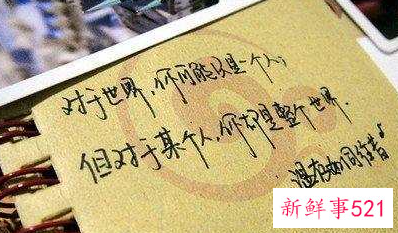 对于世界，你可能只是一个人，
但对于某个人，你却是整个世界．
新鲜事521